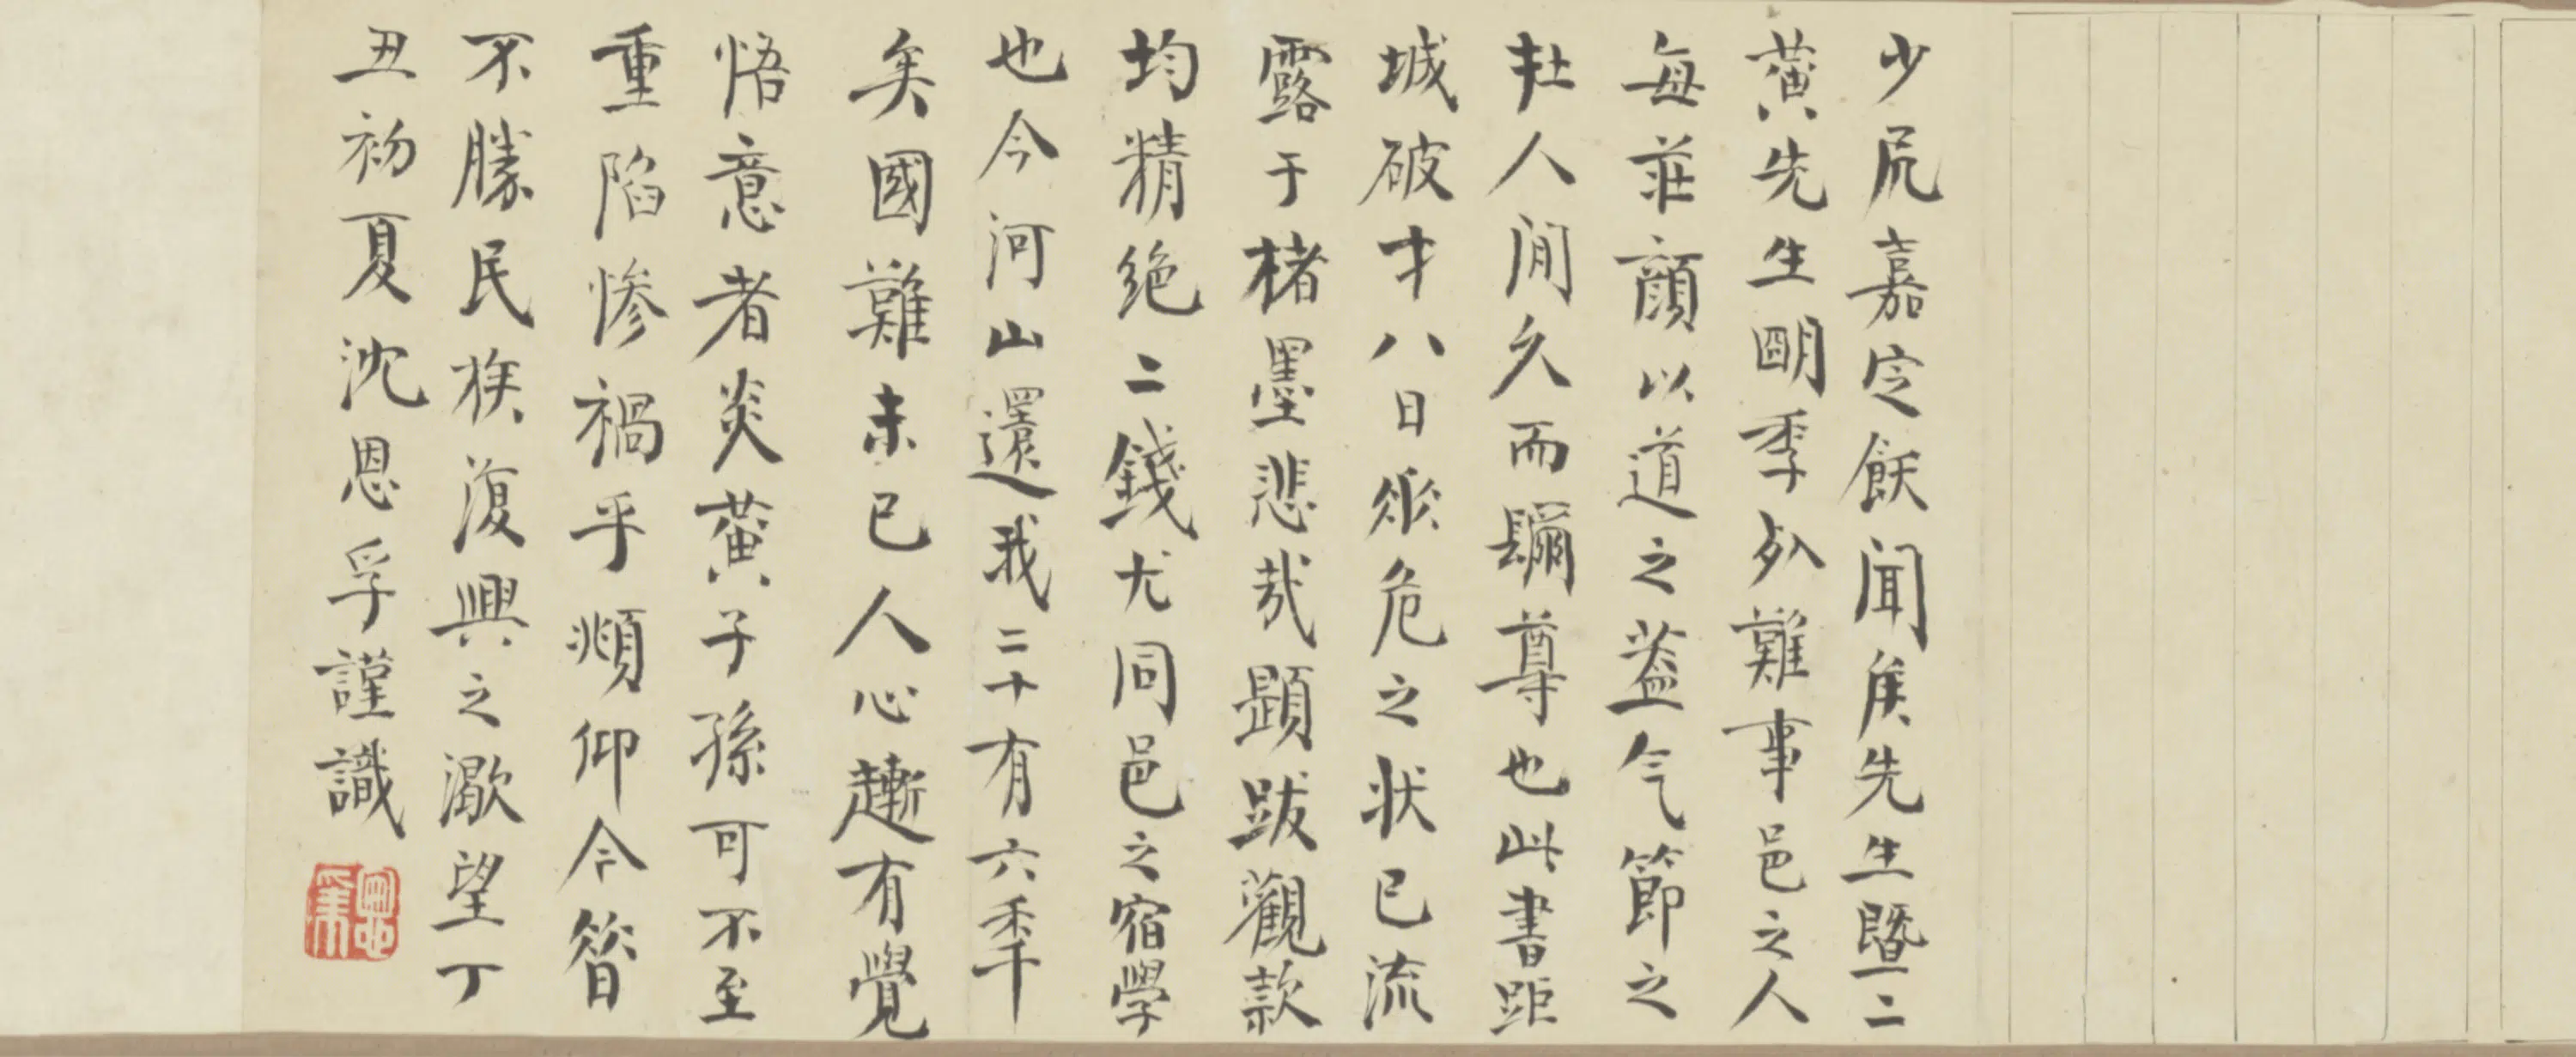 少凥嘉定飫聞矦先生暨二
黃先生朙季死難事邑之人
每莊顏以道之蓋气節之
在人閒久而彌尊也此書距
城破才八日眾危之狀已流
露于楮墨悲哉題跋觀款
均精绝二錢尤同邑之宿學
也今河山還我二十有六秊
矣國難未已人心蹔有覺
悟意者炎黃子孫可不至
重陷慘禍乎頫仰今昝
不勝民族復興之澂望丁
丑初夏沈恩孚謹識